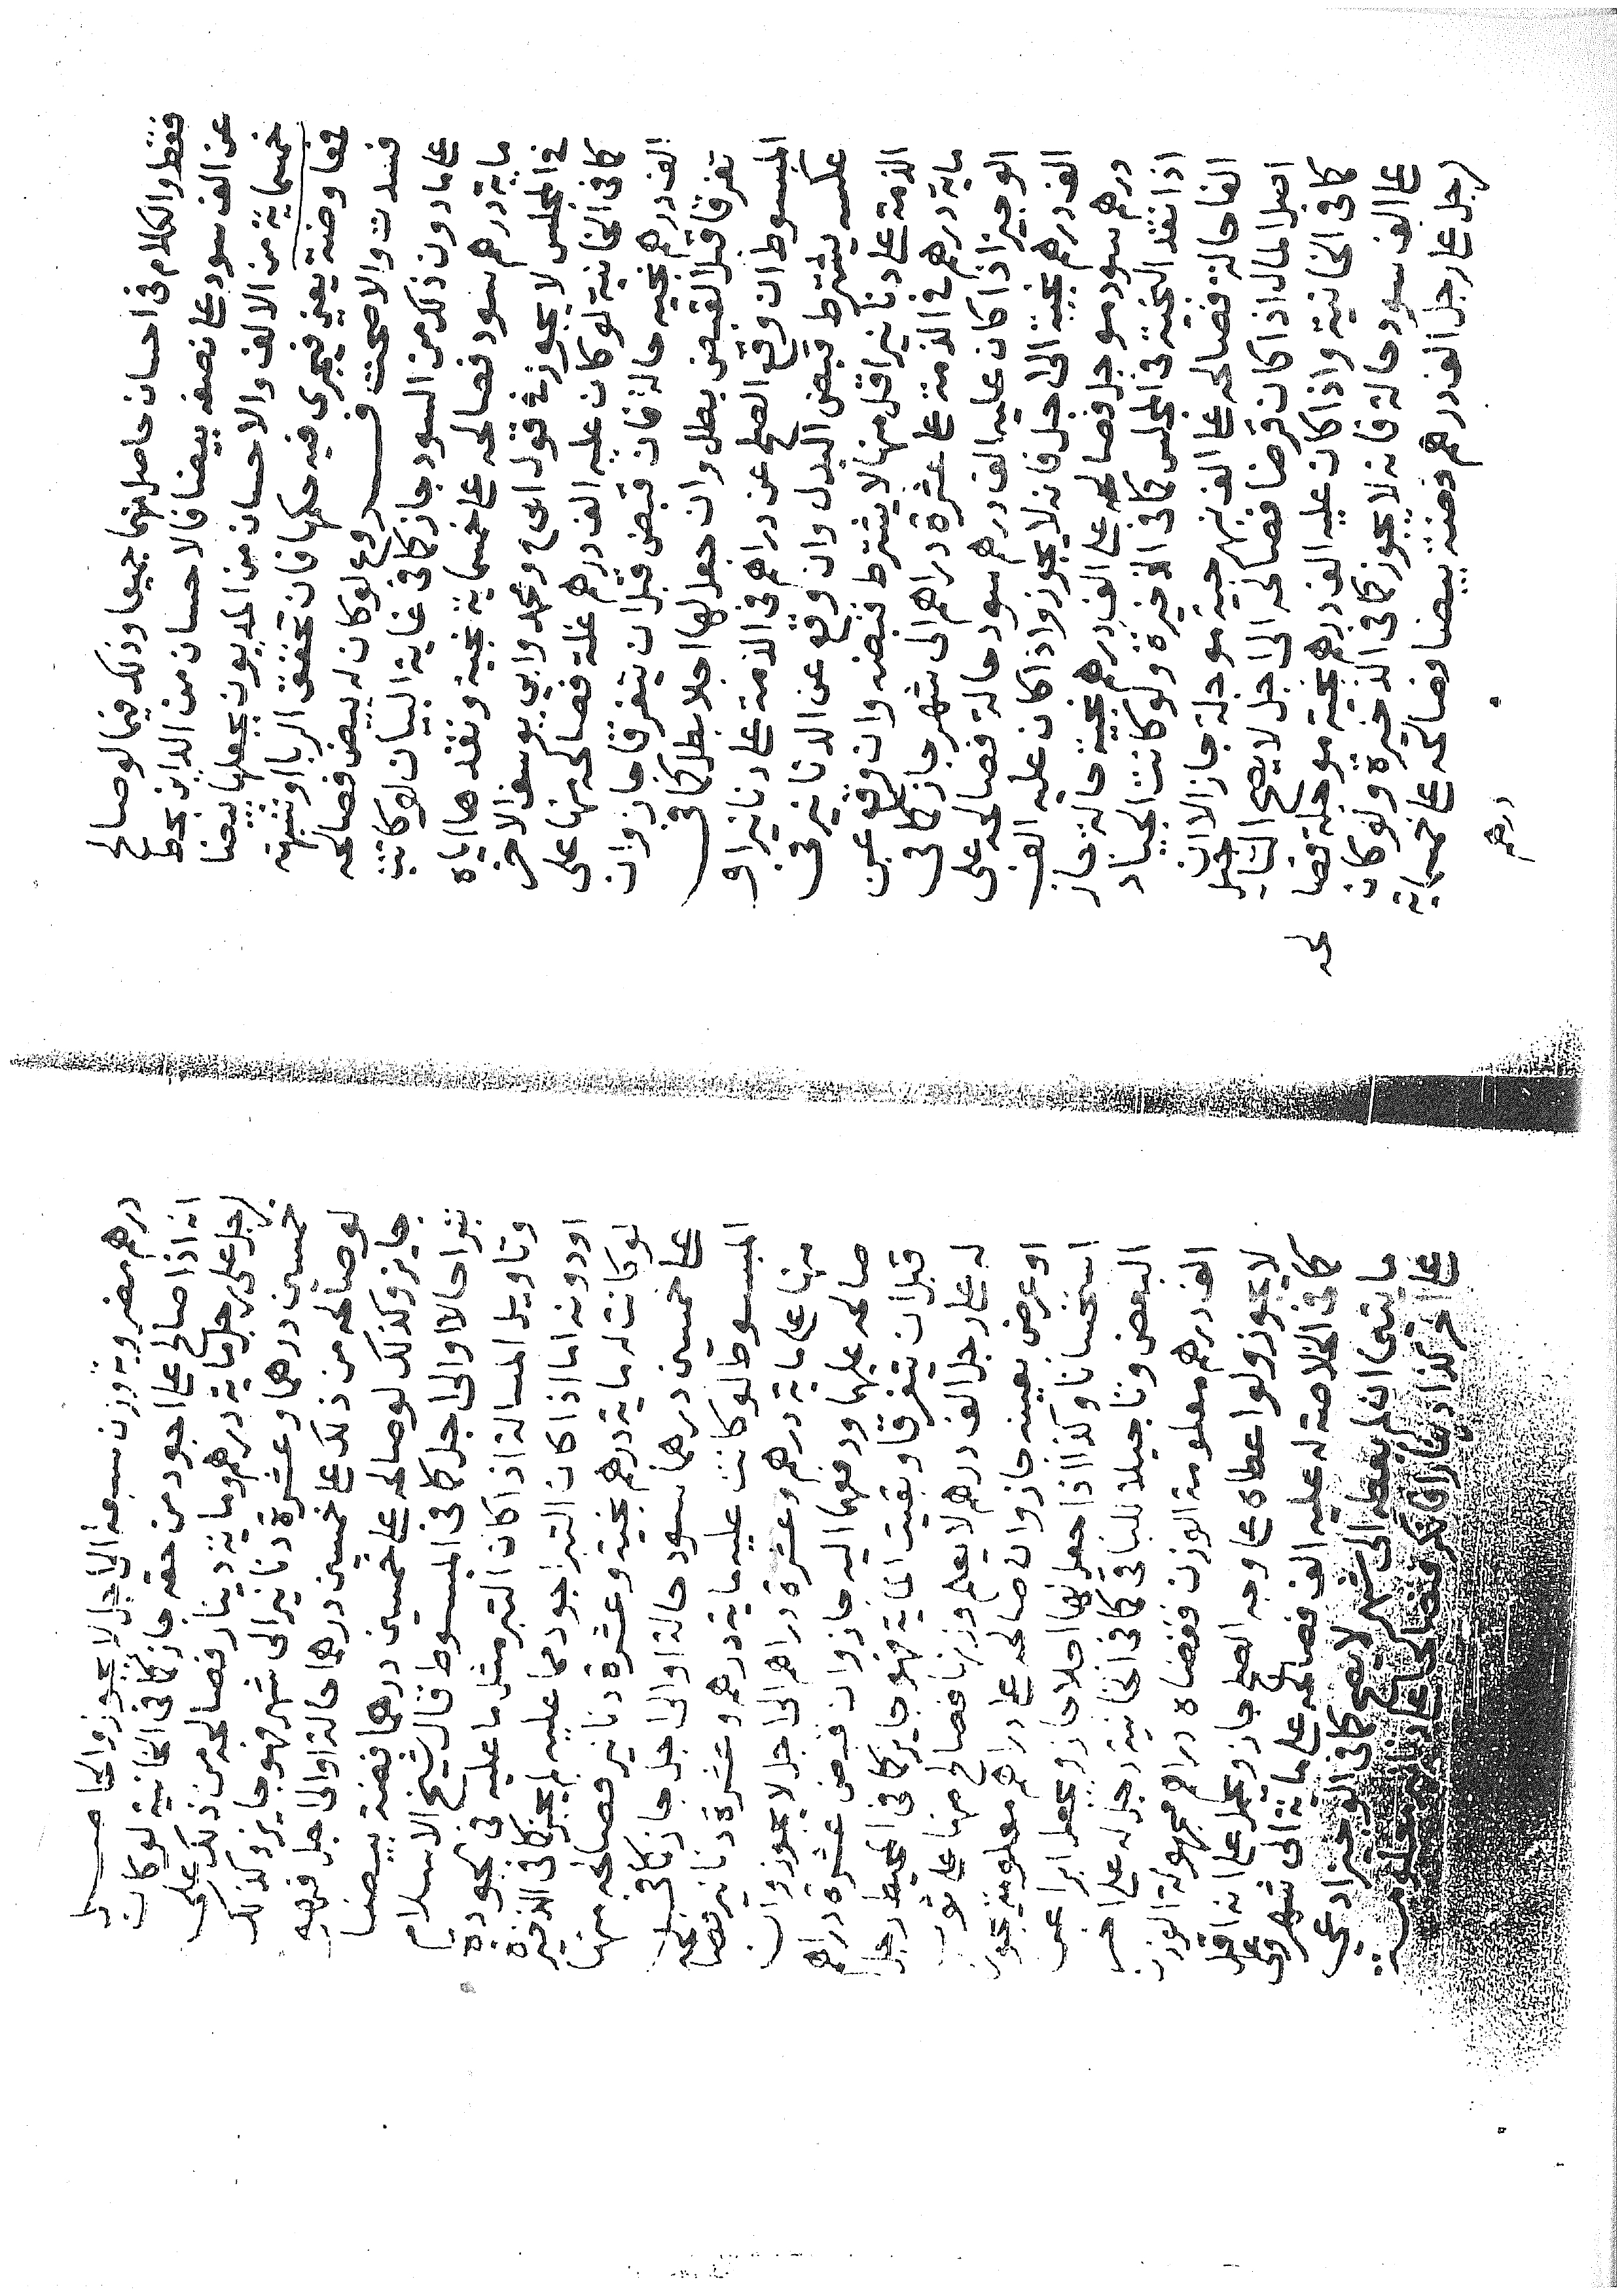 فقط والكلام فى احسان حاصل منهما جميعا وذلك فيما لو صالح
عن الف سود على نصفه بيضا فالاحسان من الداين بحط
خمسماية من الالف والاحسان من المديون بجعلها بيضا
فعاوضة يعنى فيجرى فيه حكمها فان تحقق الربا او شبهته
فسدت والا صحت فروع لو كان له بيض فصالحه
على ما دون ذلك من السود جاز كما فى غاية البيان لو كانت
ماية درهم سود فصالحه على خمسماية نجية ونقدها اياه
فى المجلس لا يجوز فى قول ابى ح ومحمد وابى يوسف الاخر
كما فى الخانية لو كان عليه الف درهم غلة فصالحه منها على
الف درهم نجيه حالة فان قبض قبل ان يتفرقا جاز وان
تفرقا قبل القبض بطل وان جعل لها اجلا بطل كما فى
المبسوط ان وقع الصلح عن دراهم فى الذمة على دنانير او
عكسه يشترط قبض البدل وان وقع عن الدنانير فى
الذمة على دنانير اقل منها لا يشترط قبضه وان وقع عن
ماية درهم فى الذمة على عشرة دراهم الى شهر جاز كما فى
الوجيز اذا كان عليه الف درهم سود حالة فصالحه على
الف درهم نجية الى اجل فانه لا يجوز واذا كان عليه الف
درهم سود موجل فصالحه على الف درهم نجية حالة جاز
اذا نقد النجية فى المجلس كما فى الذخيرة ولو كانت الجياد
الفا حالة فصالحه على الف نبهرجية موجلة جاز الا ان
اصل المال اذا كان قرضا فصالحه الى اجل لا يصح التاجيل
كما فى الخانية واذا كان عليه الف درهم نجية موجلة فصالحه
على الف سود حالة فانه لا يجوز كما فى الذخيرة ولو كان
رجل على رجل الف درهم وفضة بيضا فصالحه على خمسماية
درهم
درهم مضروبة وزن سبعة الى اجل لا يجوز والحاصل
انه اذا صالح على اجود من حقه جاز كما فى الخانية لو كان
رجل على رجل ماية درهم وماية دينار فصالحه من ذلك على
خمسين درهما وعشرة دنانير الى شهر فهو جايز وكذلك
لو صالحه من ذلك على خمسين درهما حالة او الى اجل فهو
جايز وكذلك لو صالحه على خمسين درهما فضة بيضا
تبرا حالا او الى اجل كما فى المبسوط قال شيخ الاسلام
وتاويل المسالة اذا كان التبر مثل ما عليه فى الجودة
او دونه اما اذا كان التبر اجود مما عليه لم يجز كما فى الذخيرة
لو كانت له ماية درهم نجية وعشرة دنانير فصالحه منها
على خمسين درهما سود حالة او الى اجل جاز كما فى
المبسوط لو كانت عليه ماية درهم وعشرة دنانير فصالحه
منها على ماية درهم وعشرة دراهم الى اجل لا يجوز وان
صالحه عليهما ودفعهما اليه جاز وان قبض عشرة دراهم
قبل ان يتفرقا وبقيت الماية فهو جايز كما فى المحيط رجل
له على رجل الف درهم لا يعلم وزنها فصالح منها على ثوب
او عرض بعينه جاز وان صالحه على دراهم معلومة يجوز
استحسانا وكذا اذا جعل لها اجلا جاز ويجعل ابرا عن
البعض وتاجيلا للباقى كما فى الخانية رجل له على اخر
الف درهم معلومة الوزن فقضاه دراهم مجهولة الوزن
لا يجوز ولو اعطاه على وجه الصلح جاز وعلى انه اقل
كما فى الخلاصة له عليه الف فصالحه على ماية الى شهر وعلى
مايتى ان لم يعطه الى شهر لا يصح كما فى الوجيز ادعى
على اخر كذا دينارا فانكر فصالح على دنانير معلومة